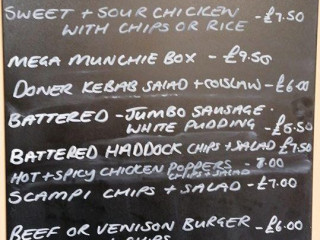 SWEET + SOUR CHICKEN - £7.50
WITH CHIPS OR RICE
MEGA MUNCHIE BOX - £9.50
DONER KEBAB SALAD + COLSLAW - £6.00
BATTERED - JUMBO SAUSAGE.
WHITE PUDDING - £5.50
BATTERED HADDOCK CHIPS + SALAD £7.50
HOT + SPICY CHICKEN POPPERS - 8.00
CHIPS + SALAD
SCAMPI CHIPS + SALAD - £7.00
BEEF OR VENISON BURGER - £6.00
CHIPS